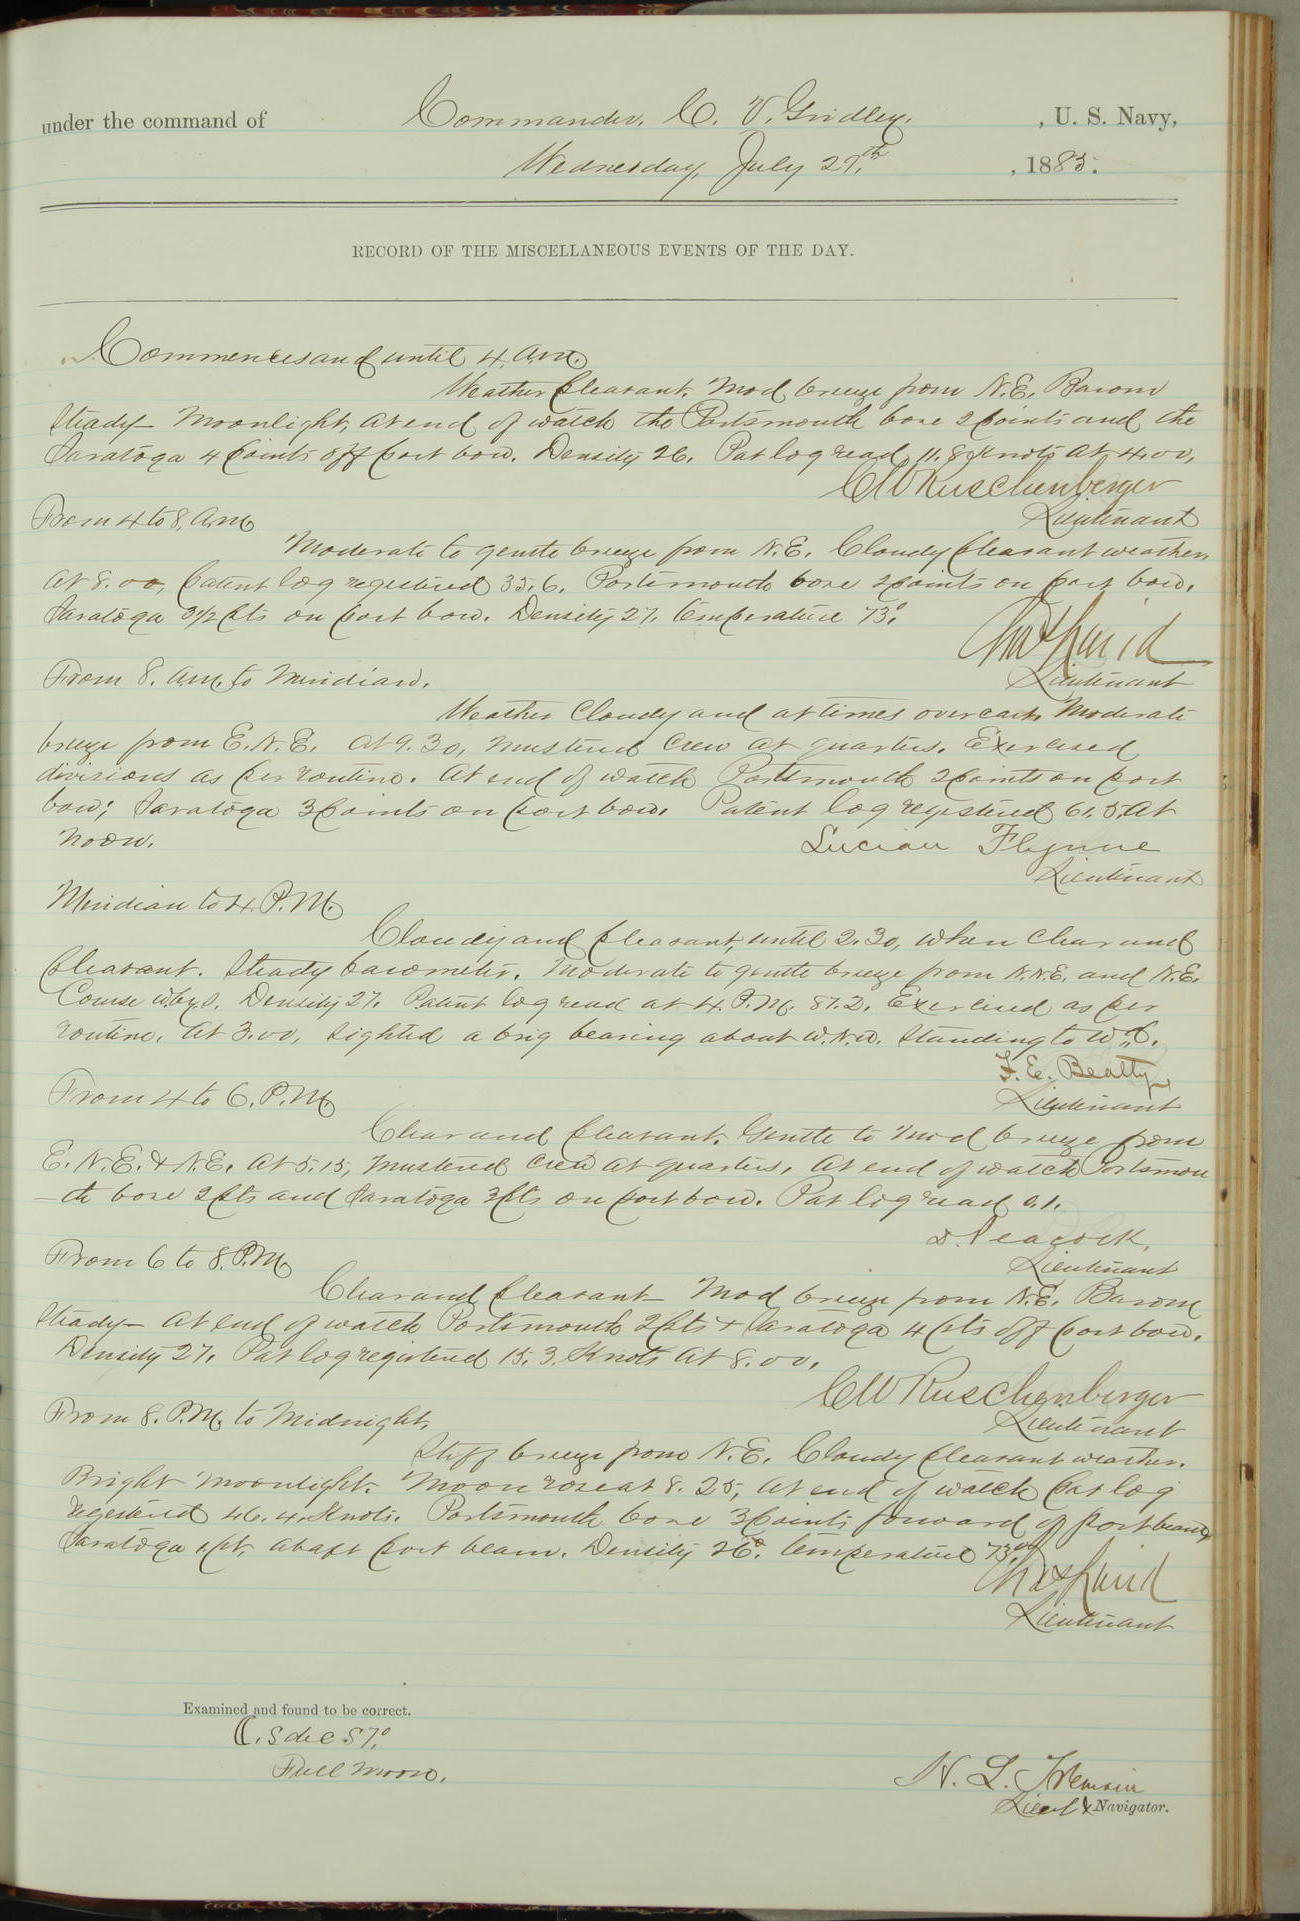 under the command of Commander. C. V. Gridley. , U. S. Navy,
Wednesday, July 29th. , 1885.
RECORD OF THE MISCELLANEOUS EVENTS OF THE DAY.
Commences and until 4. A.m.
Weather pleasant. Mod breeze from N.E. Barom
Steady— Moonlight, at end of watch the Portsmouth bore 2 points and the
Saratoga 4 points off port bow. Density 26. Pat log read 11.8 Knots at 4.00,
C W Ruschenberger
Lieutenant
From 4 to 8, A.m
Moderate to gentle breeze from N.E. Cloudy pleasant weather.
At 8.00, patent log registered 35.6. Portsmouth bore 2 points on port bow.
Saratoga 3½ pts on port bow. Density 27. temperature 73°.
Chas Laird
Lieutenant
From 8. a.m. to Meridian.
Weather Cloudy and at times overcast. Moderate
breeze from E.N.E. At 9.30, mustered crew at quarters. Exercised
divisions as per routine. At end of watch Portsmouth 2 points on port
bow; Saratoga 3 points on port bow. Patent log registered 61.5. At
noon.
Lucian Flynne
Lieutenant
Meridian to 4. P.M.
Cloudy and pleasant, until 2.30, when clear and
pleasant. Steady barometer. Moderate to gentle breeze from N.N.E. and N.E.
Course W. by S. Density 27. Patent log read at 4. P.M. 87.2. Exercised as per
routine. At 3.00, sighted a brig bearing about W.N.W. Standing to Wd.
F. E. Beatty,
Lieutenant
From 4 to 6. P.M.
Clear and pleasant. Gentle to mod breeze from
E. N. E. & N.E. At 5.15, mustered crew at quarters. At end of watch Portsmou
—th bore 2 pts and Saratoga 3 pts on port bow. Pat log read 0.1.
D. Peacock,
Lieutenant
From 6 to 8. P.M
Clear and pleasant— Mod breeze from N.E. Barom
Steady— At end of watch Portsmouth 2 pts & Saratoga 4 pts off port bow.
Density 27. Pat log registered 15.3 Knots At 8.00.
C W Ruschenberger
Lieutenant
From 8. P.M. to Midnight.
Stiff breeze from N.E. Cloudy pleasant weather.
Bright moonlight. Moon rose at 8.25, At end of watch pat log
registered 46.4. Knots. Portsmouth bore 3 points forward of port beam,
Saratoga 1 pt, abaft port beam. Density 26°. temperature 73.°
Chas Laird
Lieutenant
Examined and found to be correct.
Full moon.
H. L. Tremain
Lieut & Navigator.